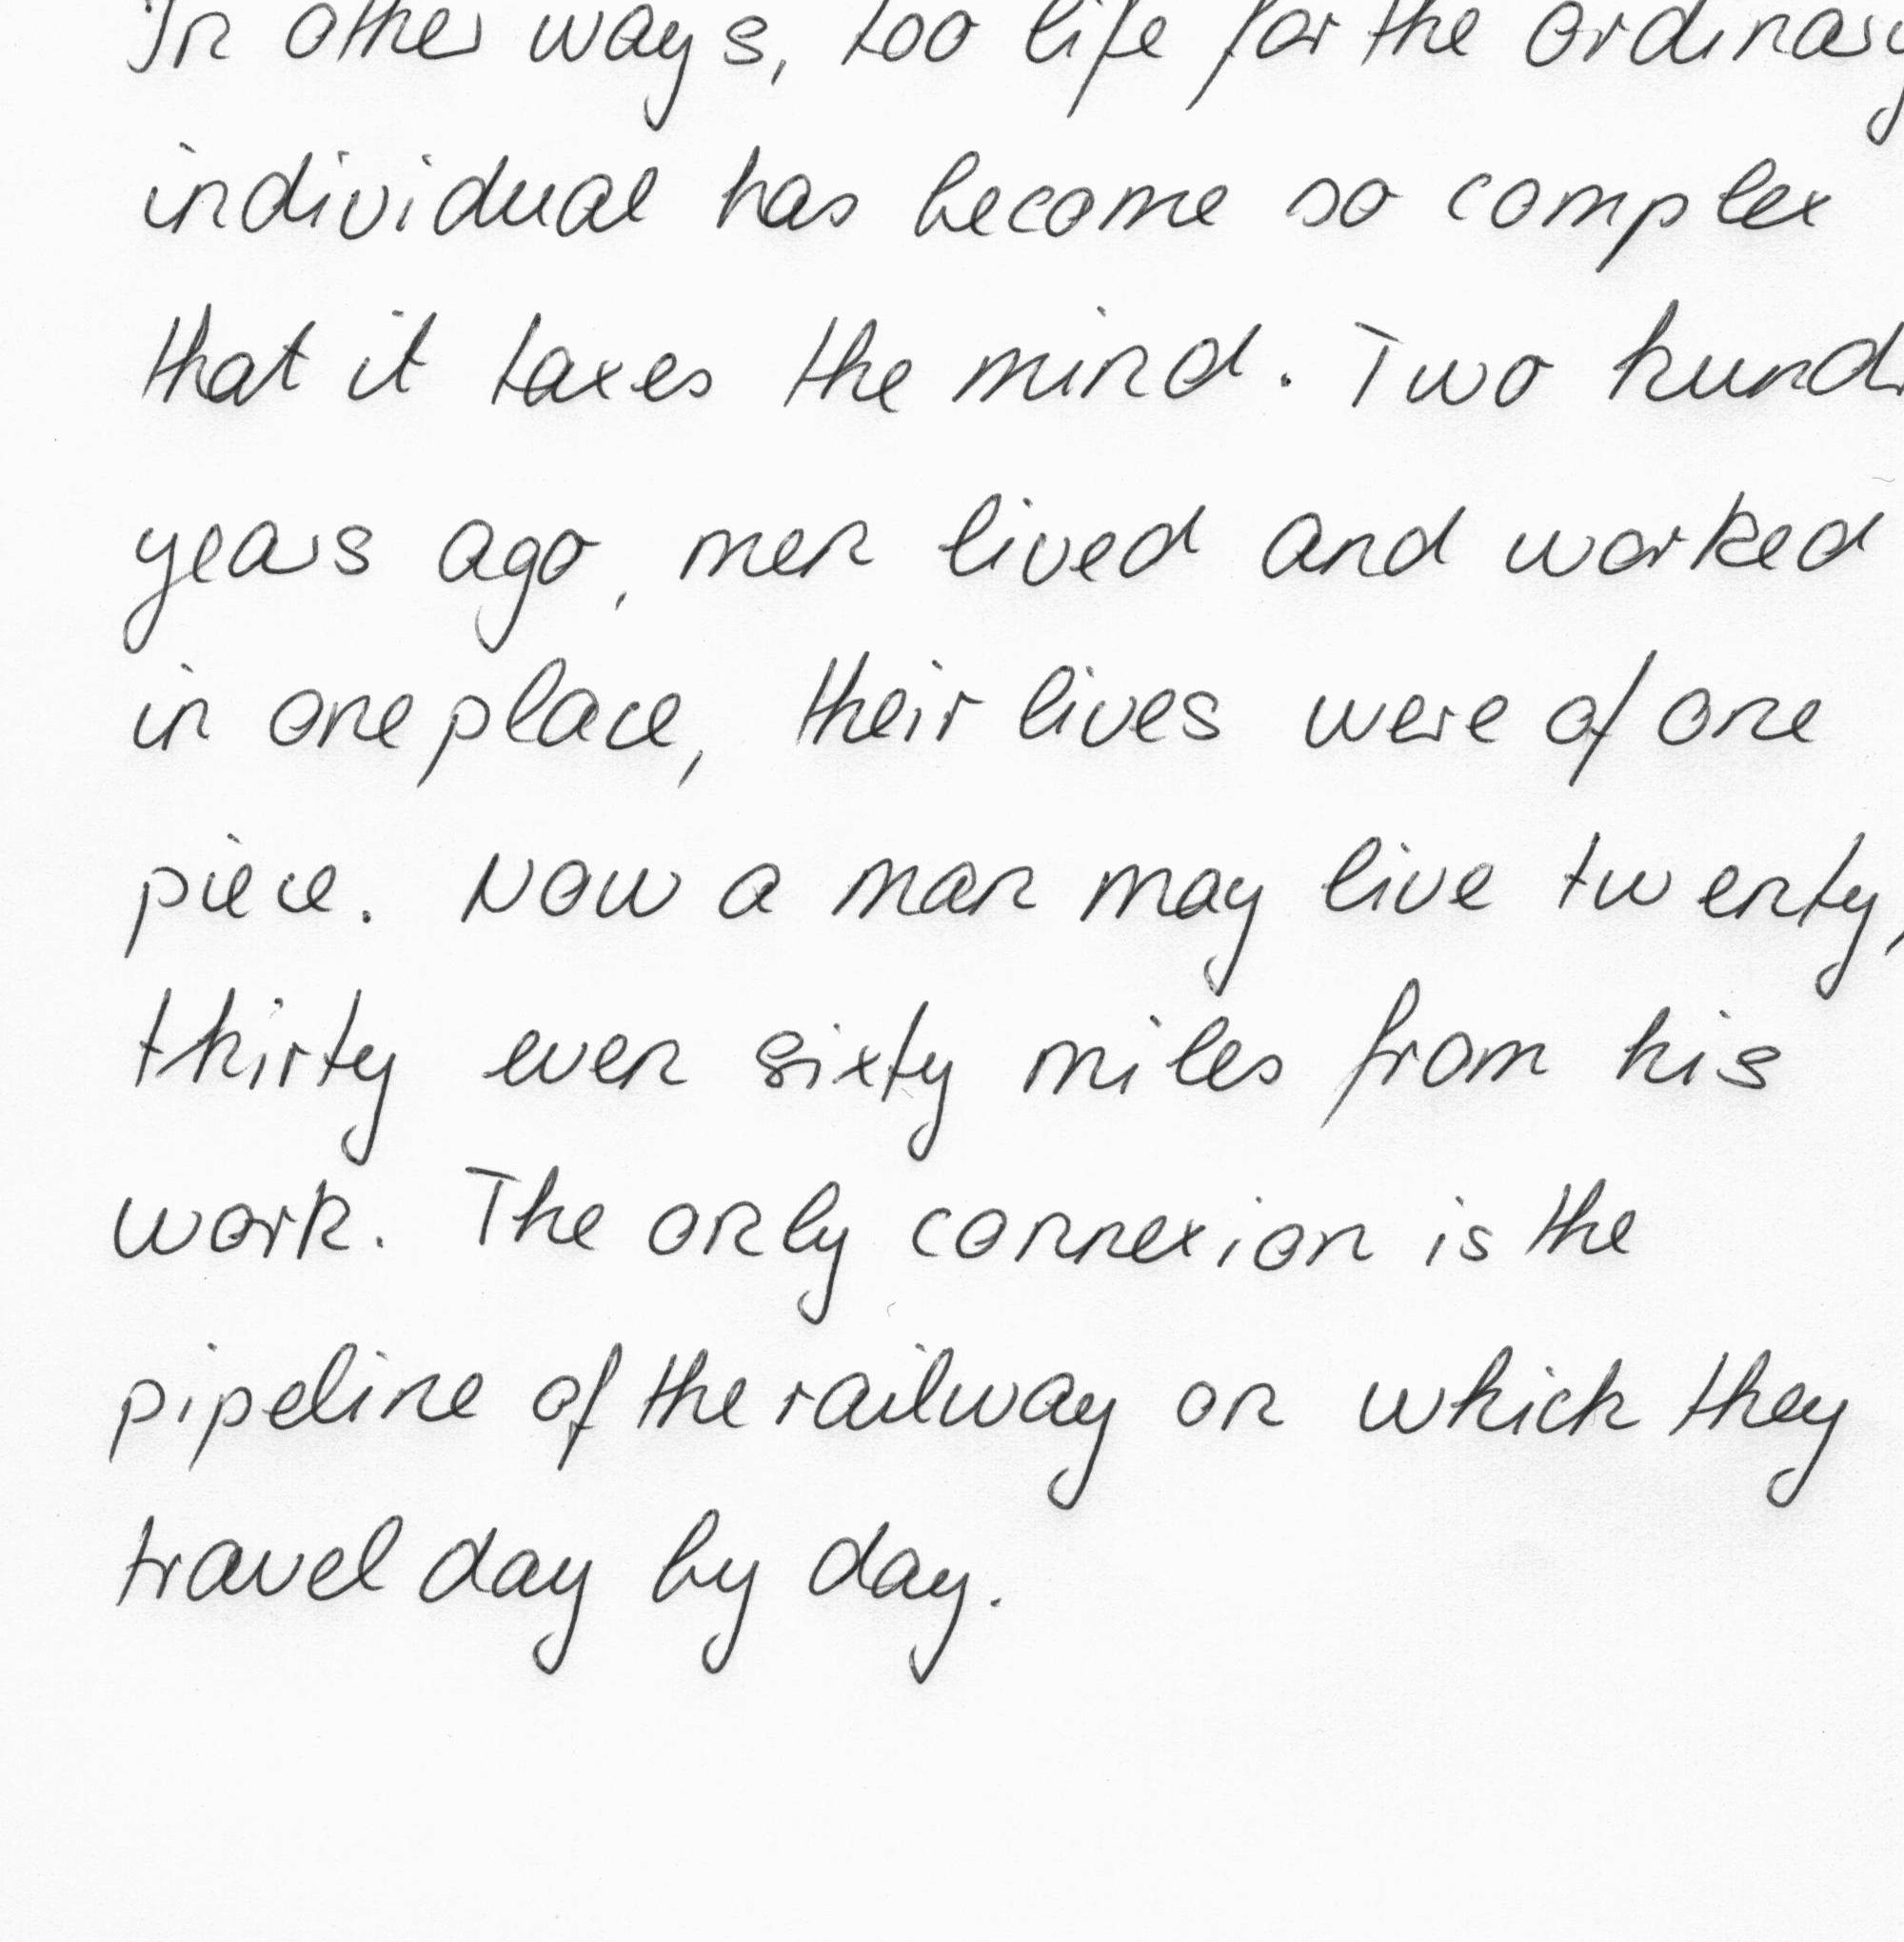 In other ways, too life for the ordinary
individual has become so complex
that it taxes the mind. Two hund
years ago, men lived and worked
in one place, their lives were of one
piece. Now a man may live twenty,
thirty even sixty miles from his
work. The only connexion is the
pipeline of the railway on which they
travel day by day.